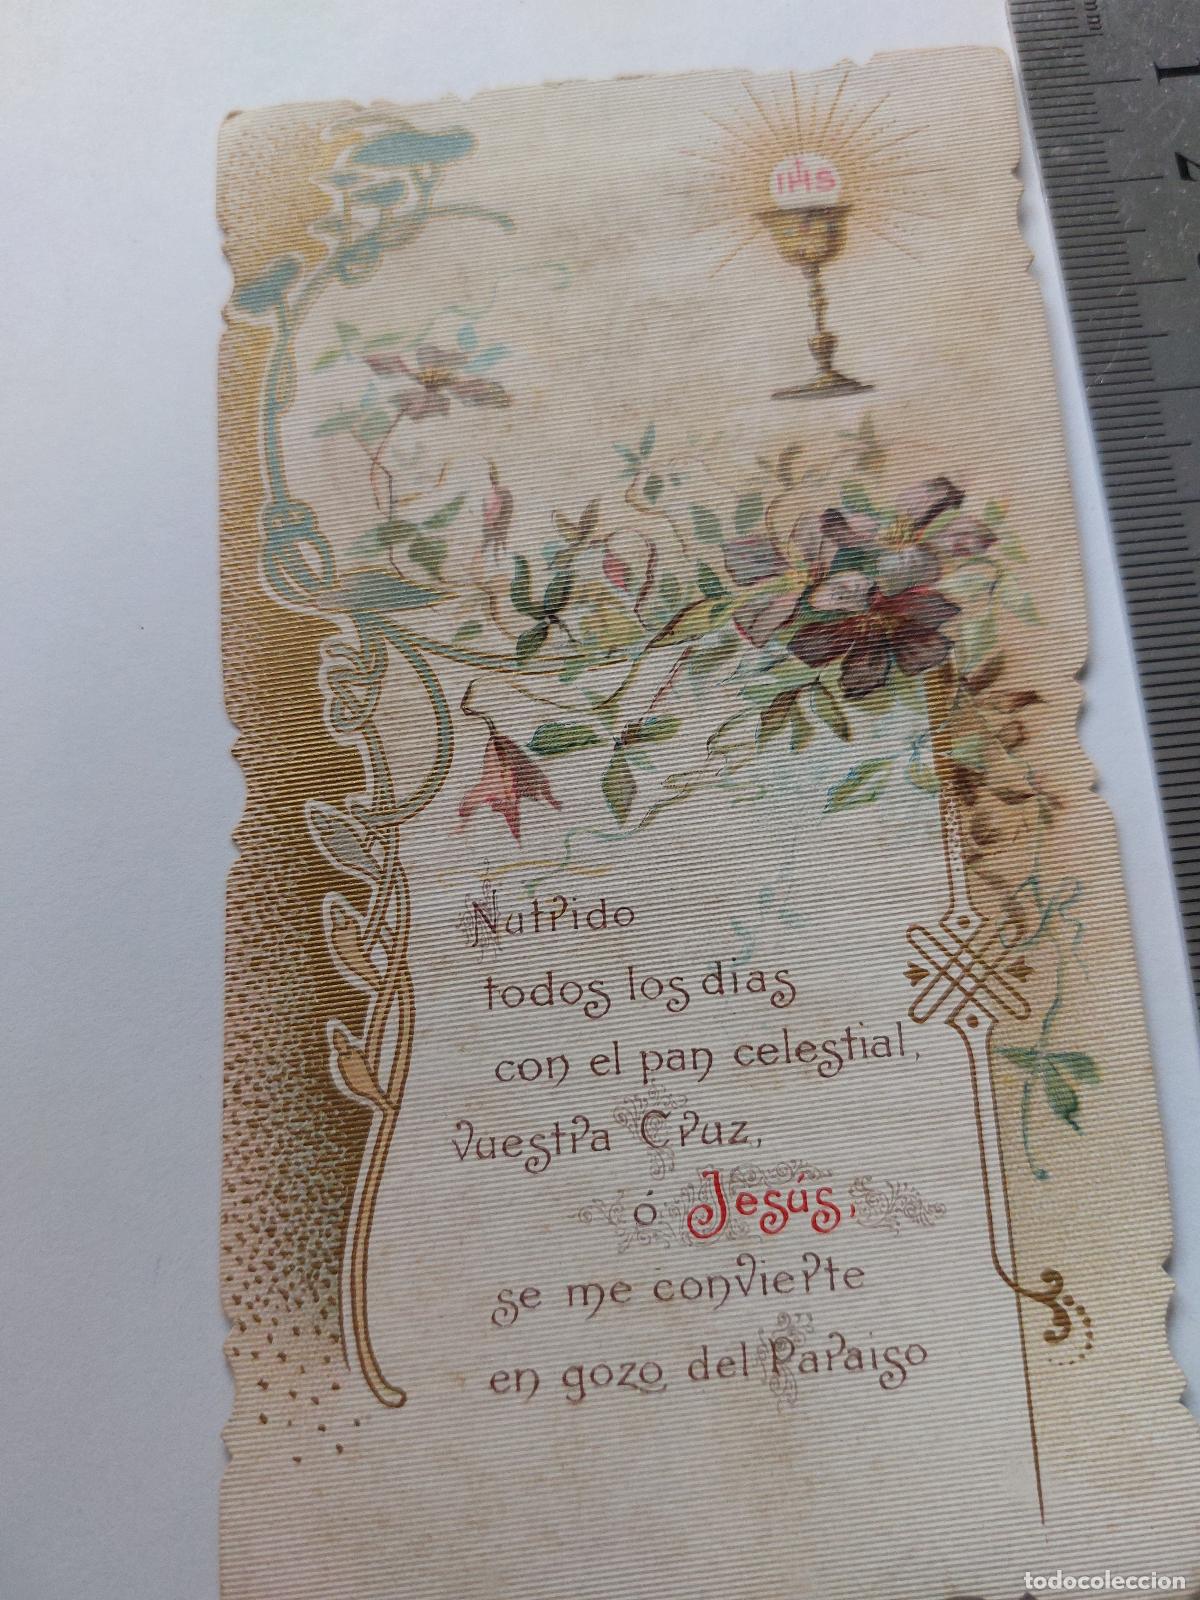 IHS
Nutrido
todos los dias
con el pan celestial,
vuestra Cruz,
ó Jesús,
se me convierte
en gozo del Paraiso
mm
1
todocoleccion